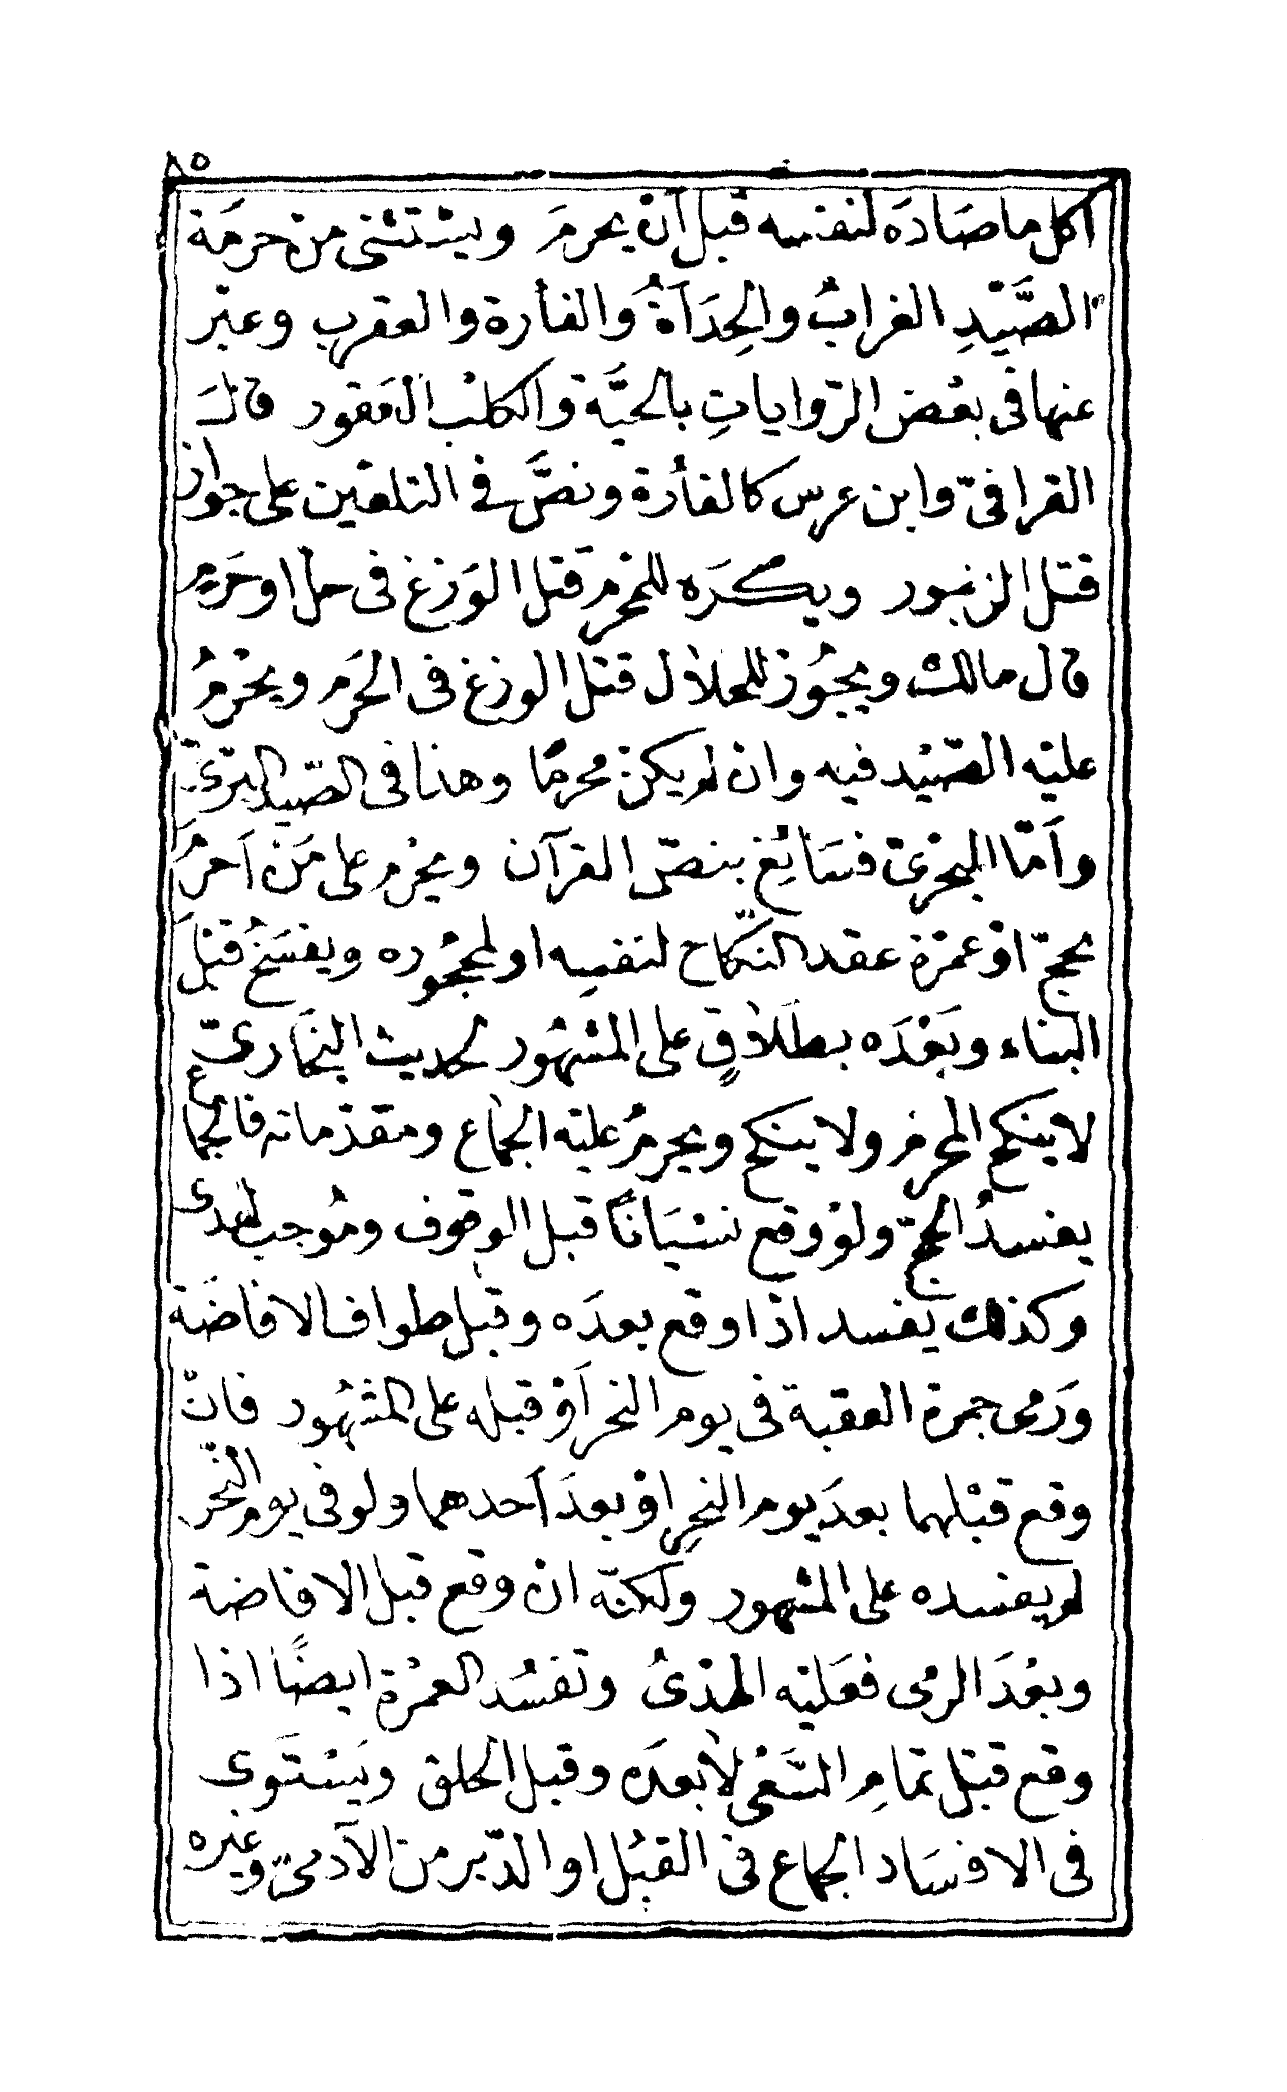 ٨٥
اكل ما صَادَه لنفسه قبل أنْ يحرمَ ويستثنى من حرمَة
الصَّيْدِ الغرابُ والحِدَأةُ والفأرة والعقرب وعبّر
عنها فى بعْض الرّواياتِ بالحيَّة والكلْب العَقور قالَ
القرافىّ وابن عرس كالفأرة ونصَّ فى التلقين على جواز
قتل الزنبور ويكرَه للمحْرم قتل الوَزغ فى حلّ او حَرمٍ
قال مالك ويجُوز للحلال قتل الوزغ فى الحَرَم ويحْرمُ
عليْه الصّيْد فيه وان لم يكن محرمًا وهذا فى الصّيد البرّىّ
وأمّا البحْرىّ فسَائغ بنصّ القرآن ويحْرم على مَنْ أحرَمَ
بحجّ اوْ عمْرة عقد النّكاح لنفسِه او لمحجُوره ويفسَخُ قبْلَ
البناء وبَعْدَه بطَلاقٍ على المشهُور لحديث البخَارىّ
لا ينكح المحْرم ولا ينكح ويحرمُ عليْه الجمَاع ومقدّماته فالجمَاع
يفسدُ الحجّ ولوْ وقع نسْيَانًا قبل الوقوف ومُوجب لهدى
وكذلك يفسد اذا وقع بعدَه وقبل طواف الافاضَة
ورَمى جمرة العقبة فى يوم النحر أوْ قبله على المشهُور فانّ
وقع قبْلهما بعدَ يوم النحرِ اوْ بعدَ أحدهما ولو فى يوم النّحر
لم يفسده على المشهور ولكنّه انْ وقع قبل الافاضة
وبعْدَ الرمْى فعَليْه الهدْىُ وتفسُد العمْرة ايضًا اذا
وقع قبْل تمامِ السَّعْى لا بعدَه وقبل الحلق ويَسْتَوى
فى الافسَاد الجماع فى القبُل او الدّبر من الآدمىّ وغيره